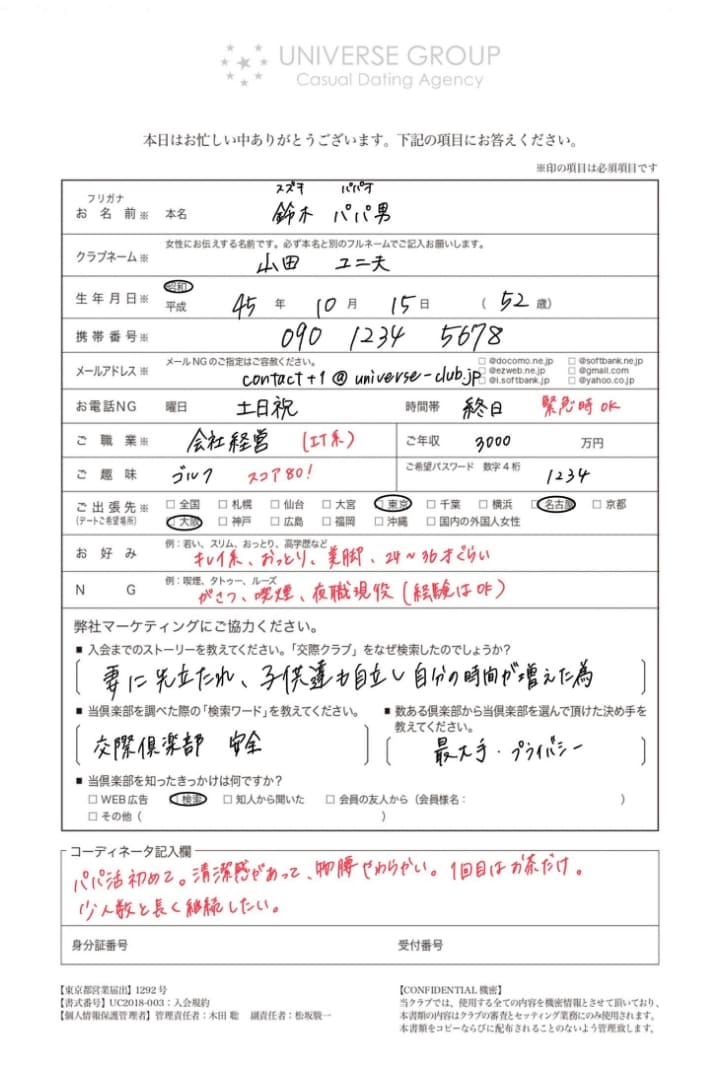 UNIVERSE GROUP
Casual Dating Agency
本日はお忙しい中ありがとうございます。下記の項目にお答えください。
※印の項目は必須項目です
フリガナ スズキ パパオ
お名前※ 本名 鈴木 パパ男
女性にお伝えする名前です。必ず本名と別のフルネームでご記入お願いします。
クラブネーム※ 山田 ユニ夫
生年月日※ 昭和 平成 45年 10月 15日 (52歳)
携帯番号※ 090 1234 5678
メールNGのご指定はご容赦ください。 □@docomo.ne.jp □@softbank.ne.jp
メールアドレス※ contact+1@universe-club.jp □@ezweb.ne.jp □@gmail.com
□@i.softbank.jp □@yahoo.co.jp
お電話NG 曜日 土日祝 時間帯 終日 緊急時OK
ご職業※ 会社経営 (IT系) ご年収 3000 万円
ご趣味 ゴルフ スコア80! ご希望パスワード 数字4桁 1234
ご出張先※ □全国 □札幌 □仙台 □大宮 □東京 □千葉 □横浜 □名古屋 □京都
(デートご希望場所) □大阪 □神戸 □広島 □福岡 □沖縄 □国内の外国人女性
例:若い、スリム、おっとり、高学歴など
お好み キレイ系、おっとり、美脚、24~36才ぐらい
例:喫煙、タトゥー、ルーズ
NG がさつ、喫煙、夜職現役(経験はOK)
弊社マーケティングにご協力ください。
■入会までのストーリーを教えてください。「交際クラブ」をなぜ検索したのでしょうか?
妻に先立たれ、子供達も自立し自分の時間が増えた為
■当倶楽部を調べた際の「検索ワード」を教えてください。
交際倶楽部 安全
■数ある倶楽部から当倶楽部を選んで頂けた決め手を
教えてください。
最大手・プライバシー
■当倶楽部を知ったきっかけは何ですか?
□WEB広告 □検索 □知人から聞いた □会員の友人から(会員様名: )
□その他( )
コーディネータ記入欄
パパ活初めて。清潔感があって、物腰やわらかい。1回目はお茶だけ。
少人数と長く継続したい。
身分証番号 受付番号
【東京都営業届出】1292号
【書式番号】UC2018-003:入会規約
【個人情報保護管理者】管理責任者:木田聡 副責任者:松坂駿一
【CONFIDENTIAL 機密】
当クラブでは、使用する全ての内容を機密情報とさせて頂いており、
本書類の内容はクラブの審査とセッティング業務にのみ使用されます。
本書類をコピーならびに配布されることのないよう管理致します。